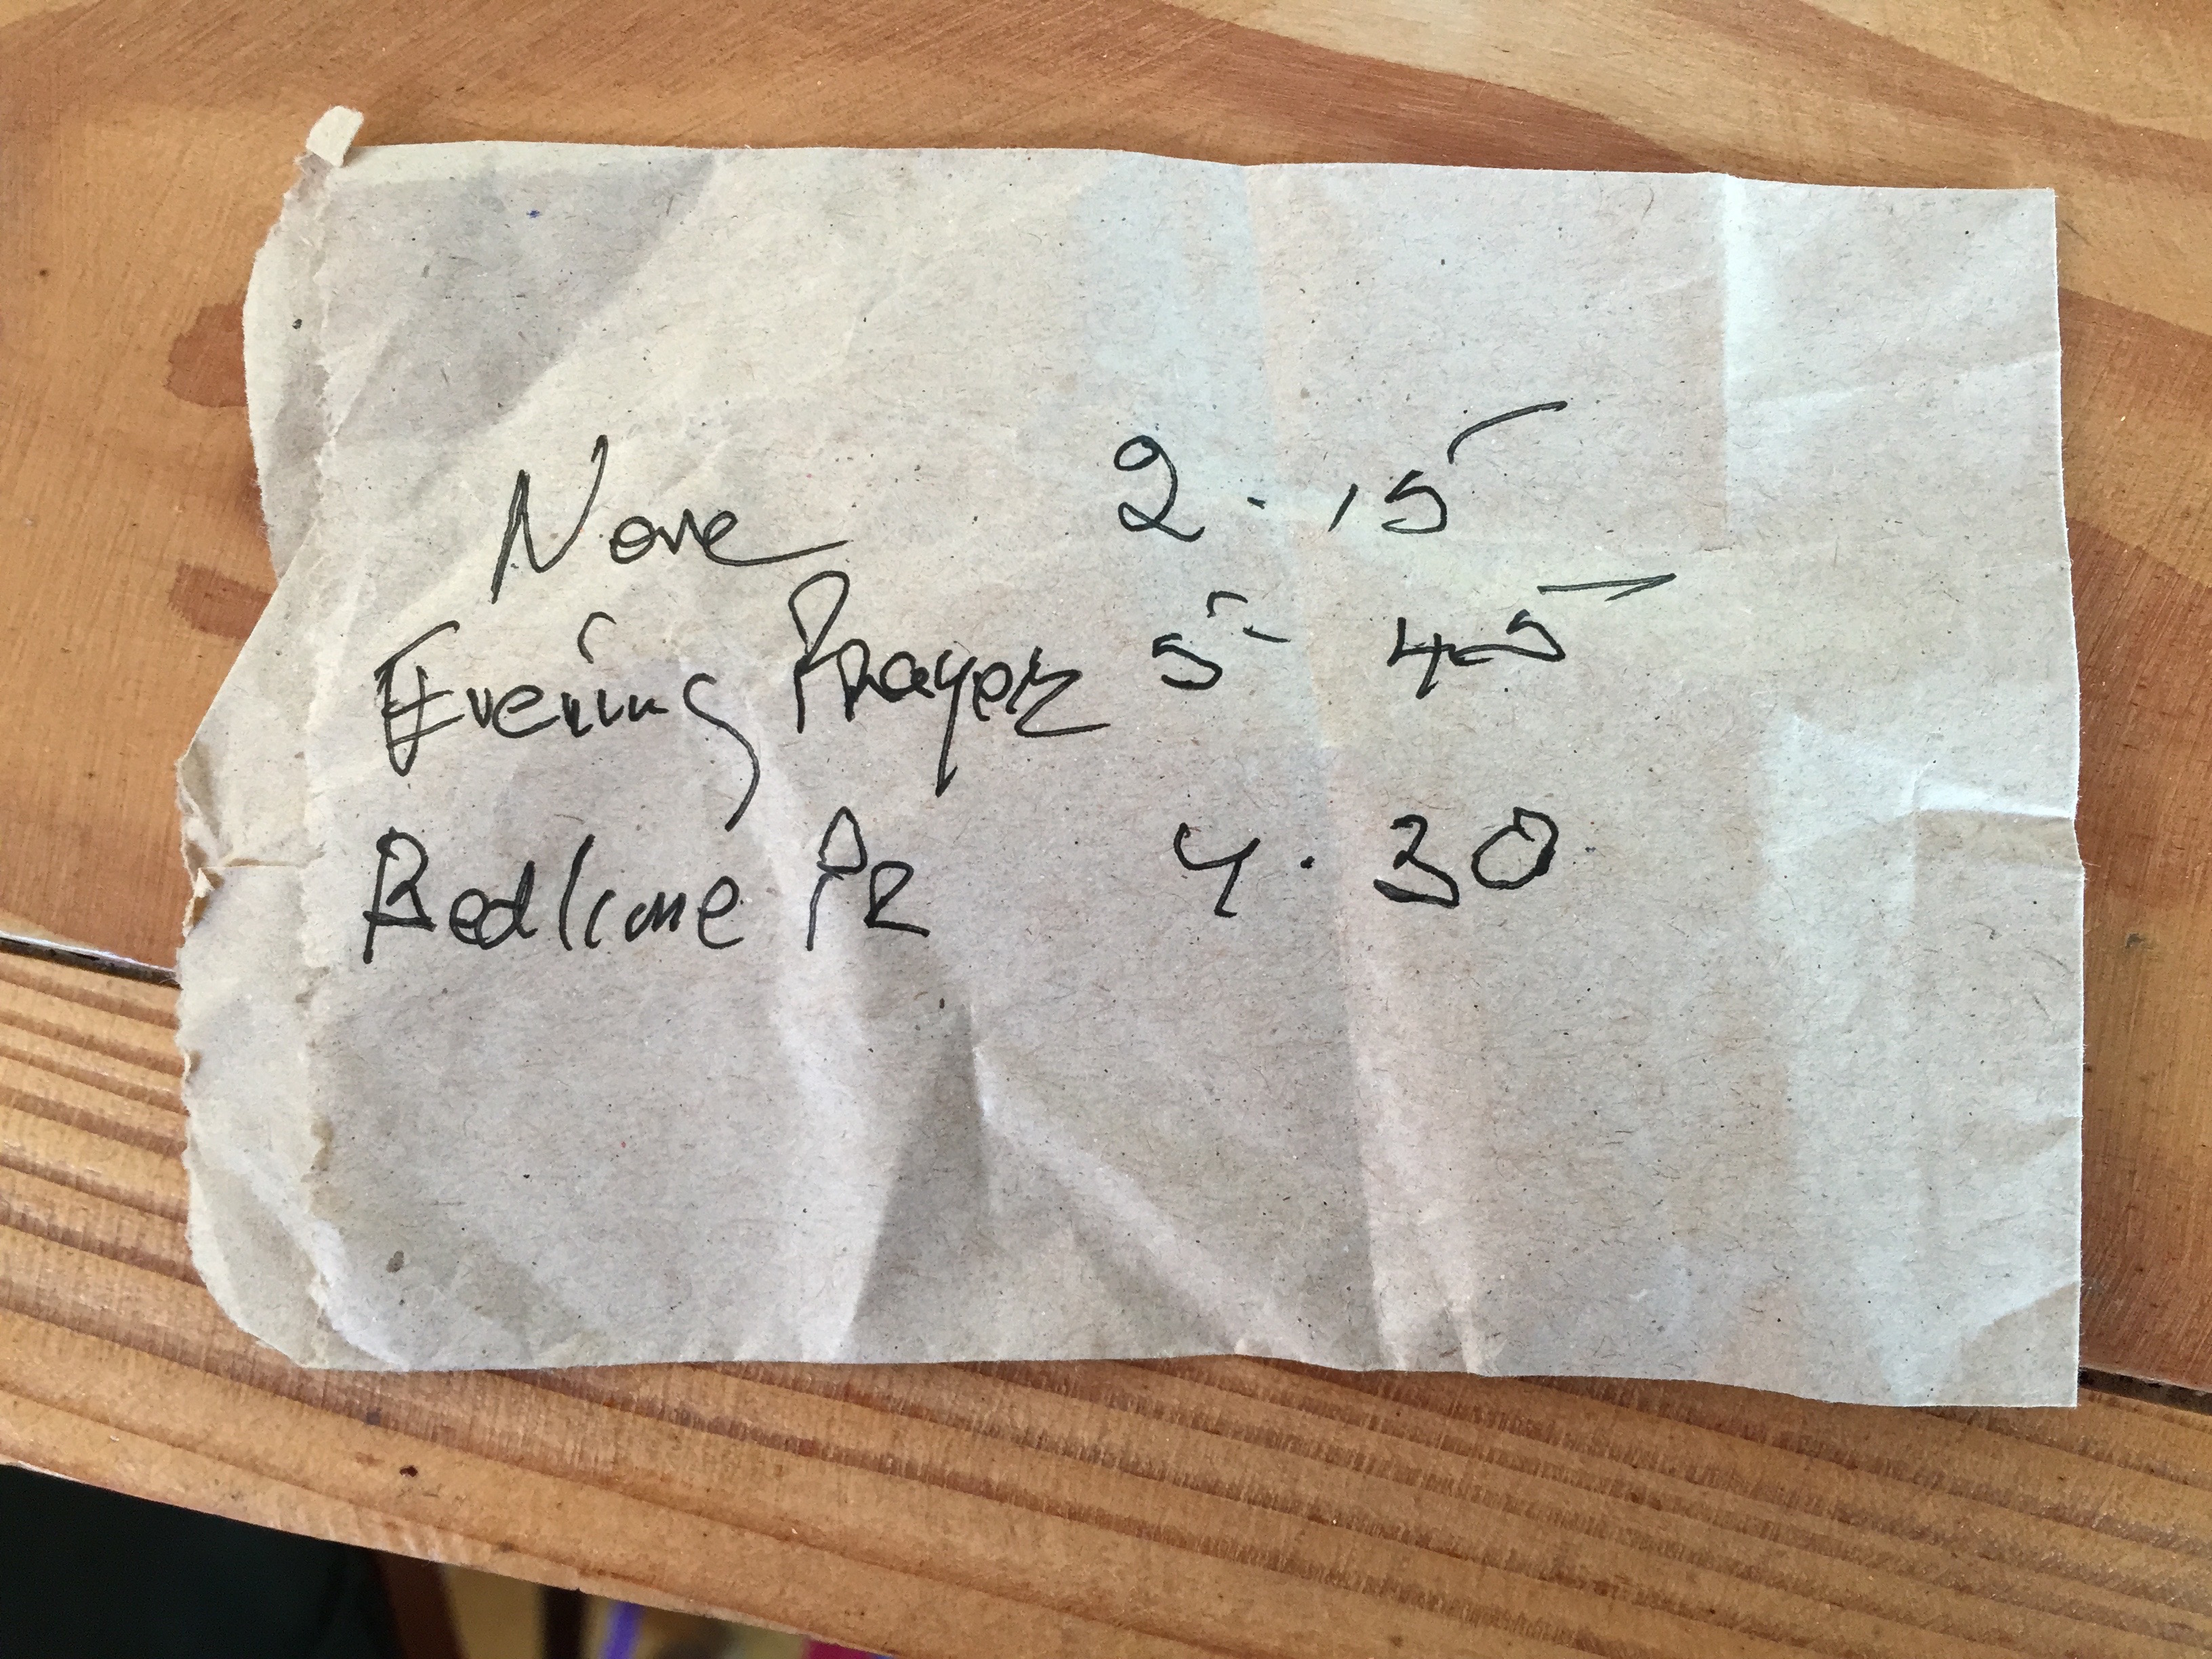 None 2.15
Evening Prayer 5 45
Bedtime PR 4.30